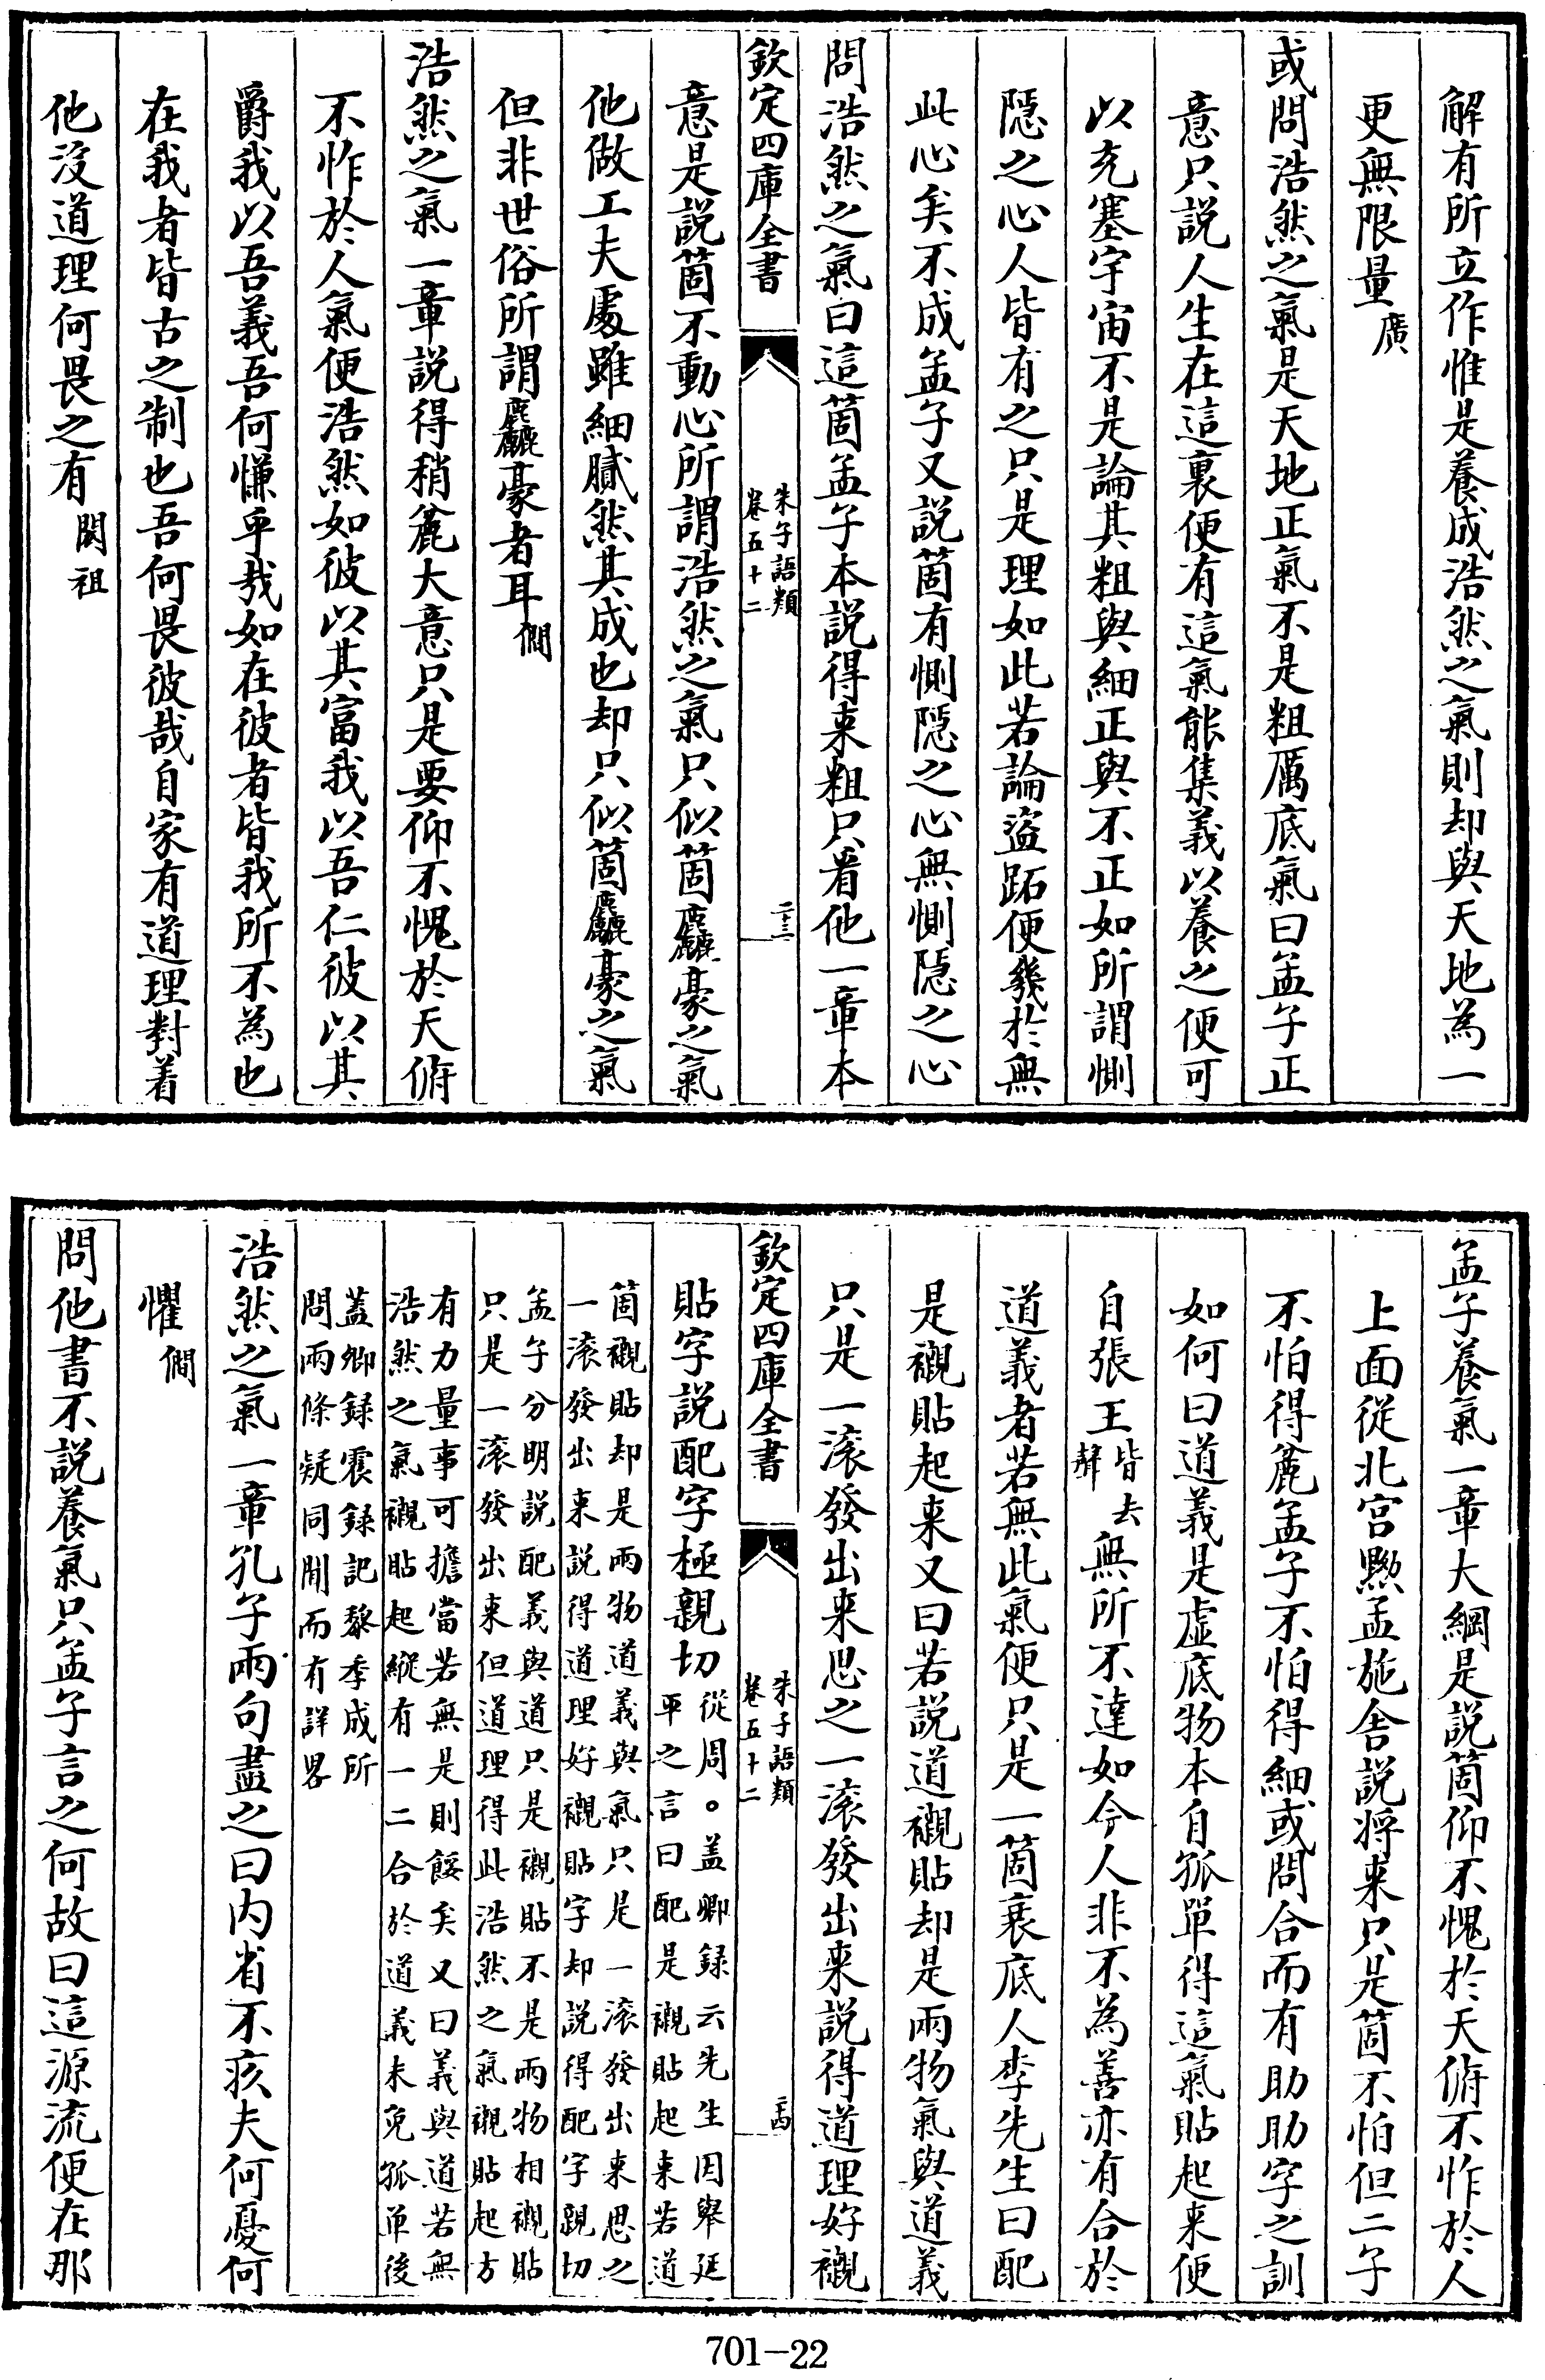 解有所立作惟是養成浩然之氣則却與天地為一
更無限量廣
或問浩然之氣是天地正氣不是粗厲底氣曰孟子正
意只說人生在這裏便有這氣能集義以養之便可
以充塞宇宙不是論其粗與細正與不正如所謂惻
隠之心人皆有之只是理如此若論盜跖便幾於無
此心矣不成孟子又說箇有惻隠之心無惻隠之心
問浩然之氣曰這箇孟子本說得来粗只看他一章本
欽定四庫全書
朱子語類
卷五十二
二十三
意是說箇不動心所謂浩然之氣只似箇麤豪之氣
他做工夫處雖細膩然其成也却只似箇麤豪之氣
但非世俗所謂麤豪者耳僩
浩然之氣一章說得稍麄大意只是要仰不愧於天俯
不怍於人氣便浩然如彼以其富我以吾仁彼以其
爵我以吾義吾何慊乎哉如在彼者皆我所不為也
在我者皆古之制也吾何畏彼哉自家有道理對着
他沒道理何畏之有閎祖
孟子養氣一章大綱是說箇仰不愧於天俯不怍於人
上面從北宫黝孟施舍說將来只是箇不怕但二子
不怕得麄孟子不怕得細或問合而有助助字之訓
如何曰道義是虛底物本自孤單得這氣貼起来便
自張王皆去聲無所不達如今人非不為善亦有合於
道義者若無此氣便只是一箇衰底人李先生曰配
是襯貼起来又曰若說道襯貼却是兩物氣與道義
只是一滚發出来思之一滚發出来說得道理好襯
欽定四庫全書
朱子語類
卷五十二
二十四
貼字說配字極親切從周。盖卿録云先生因舉延
平之言曰配是襯貼起来若道
箇襯貼却是兩物道義與氣只是一滚發出来思之
一滚發出来說得道理好襯貼字却說得配字親切
孟子分明說配義與道只是襯貼不是兩物相襯貼
只是一滚發出来但道理得此浩然之氣襯貼起方
有力量事可擔當若無是則餒矣又曰義與道若無
浩然之氣襯貼起縱有一二合於道義未免孤單後
蓋卿録震録記黎季成所
問兩條疑同聞而有詳畧
浩然之氣一章孔子兩句盡之曰内省不疚夫何憂何
懼僩
問他書不說養氣只孟子言之何故曰這源流便在那
701-22